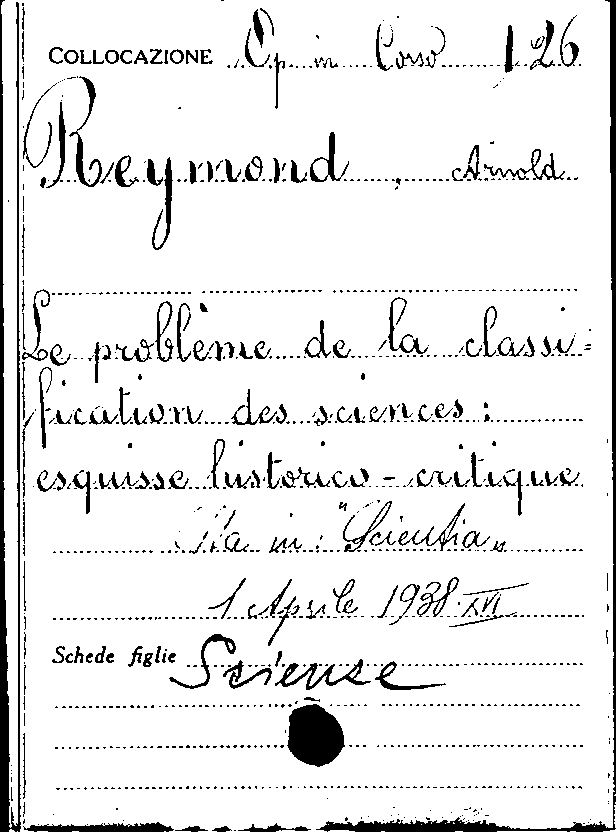 COLLOCAZIONE Op in Corso 126
Reymond, Arnold
Le problème de la classi=
fication des sciences:
esquisse historico-critique
in: "Scientia"
1 Aprile 1938·XVI
Schede figlie Scienze